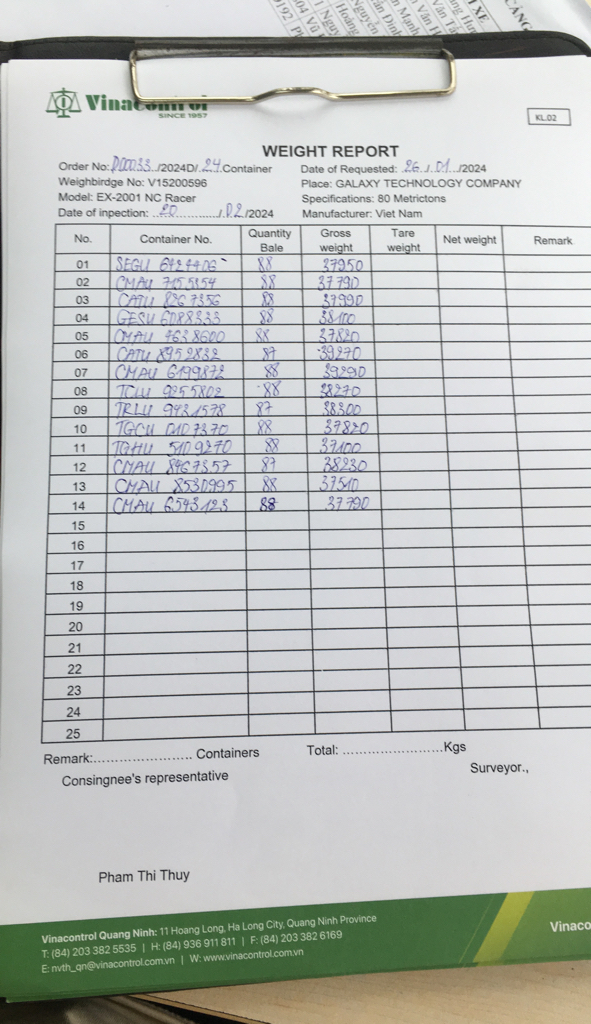 Vinacontrol
SINCE 1957
KL.02
WEIGHT REPORT
Order No: D00033 /2024D/ 24 Container
Date of Requested: 26 / 01 /2024
Weighbirdge No: V15200596
Place: GALAXY TECHNOLOGY COMPANY
Model: EX-2001 NC Racer
Specifications: 80 Metrictons
Date of inpection: 20 / 02 /2024
Manufacturer: Viet Nam
No. Container No. Quantity Bale Gross weight Tare weight Net weight Remark
01 SEGU 88 37950
02 CMAU 88 37790
03 CATU 8267356 88 37990
04 GESU 6088333 88 38100
05 CMAU 4638600 88 37820
06 CATU 8952832 87 39270
07 CMAU 6199872 88 39290
08 TCLU 9255802 88 38270
09 TRLU 87 38300
10 TGCU 0107370 88 37820
11 TGHU 5109270 88 37100
12 CMAU 8967357 87 38230
13 CMAU 8530995 88 37510
14 CMAU 6543123 88 37790
15
16
17
18
19
20
21
22
23
24
25
Remark:...................... Containers Total: ......................Kgs
Consingnee's representative Surveyor.,
Pham Thi Thuy
Vinacontrol Quang Ninh: 11 Hoang Long, Ha Long City, Quang Ninh Province
T: (84) 203 382 5535 | H: (84) 936 911 811 | F: (84) 203 382 6169
E: nvth_qn@vinacontrol.com.vn | W: www.vinacontrol.com.vn
Vinaco